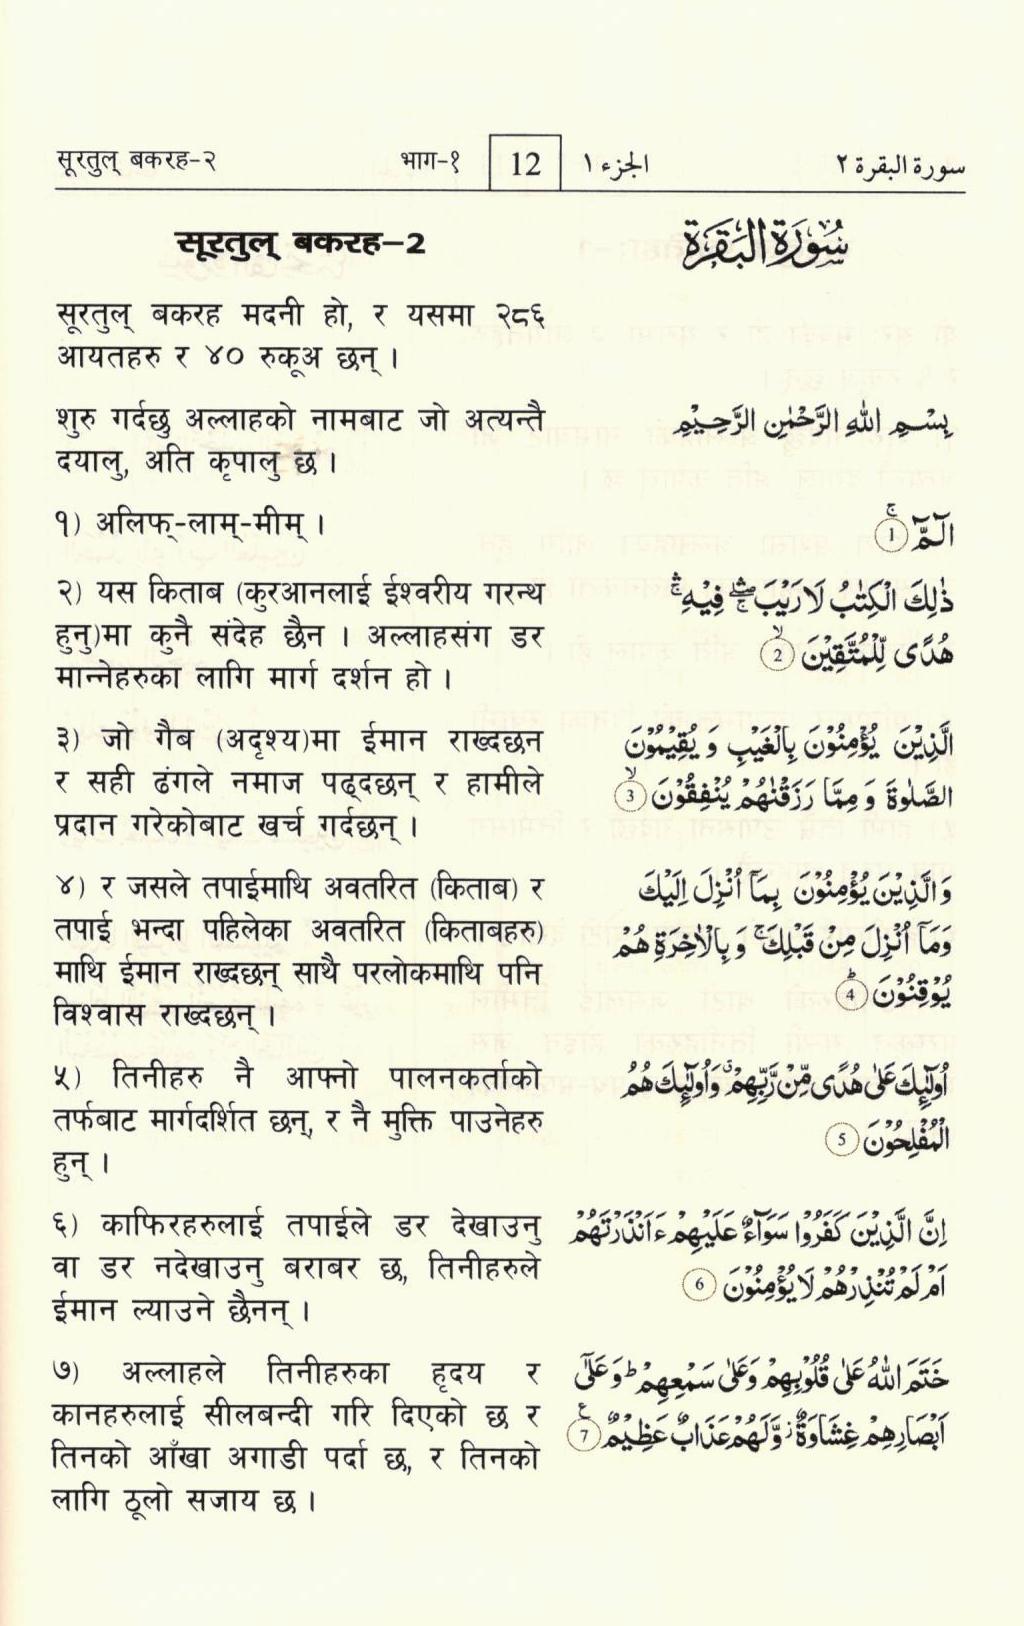 सूरतुल् बकरह-२ भाग-१ 12 الجزء ١ سورة البقرة ٢
सूरतुल् बकरह-2
سُوْرَةُ الْبَقَرَةِ
सूरतुल् बकरह मदनी हो, र यसमा २८६
आयतहरु र ४० रुकूअ छन् ।
शुरु गर्दछु अल्लाहको नामबाट जो अत्यन्तै
दयालु, अति कृपालु छ ।
بِسْمِ اللّٰهِ الرَّحْمٰنِ الرَّحِيْمِ
१) अलिफ्-लाम्-मीम् ।
الٓمّٓ ۚ 1
२) यस किताब (कुरआनलाई ईश्वरीय गरन्थ
हुनु)मा कुनै संदेह छैन । अल्लाहसंग डर
मान्नेहरुका लागि मार्ग दर्शन हो ।
ذٰلِكَ الْكِتٰبُ لَا رَيْبَ ۛۖۚ فِيْهِ ۛۚ
هُدًى لِّلْمُتَّقِيْنَ ۙ 2
३) जो गैब (अदृश्य)मा ईमान राख्दछन
र सही ढंगले नमाज पढ्दछन् र हामीले
प्रदान गरेकोबाट खर्च गर्दछन् ।
الَّذِيْنَ يُؤْمِنُوْنَ بِالْغَيْبِ وَ يُقِيْمُوْنَ
الصَّلٰوةَ وَ مِمَّا رَزَقْنٰهُمْ يُنْفِقُوْنَ ۙ 3
४) र जसले तपाईमाथि अवतरित (किताब) र
तपाई भन्दा पहिलेका अवतरित (किताबहरु)
माथि ईमान राख्दछन् साथै परलोकमाथि पनि
विश्वास राख्दछन् ।
وَ الَّذِيْنَ يُؤْمِنُوْنَ بِمَاۤ اُنْزِلَ اِلَيْكَ
وَمَاۤ اُنْزِلَ مِنْ قَبْلِكَ ۚ وَ بِالْاٰخِرَةِ هُمْ
يُوْقِنُوْنَ ؕ 4
५) तिनीहरु नै आफ्नो पालनकर्ताको
तर्फबाट मार्गदर्शित छन्, र नै मुक्ति पाउनेहरु
हुन् ।
اُولٰٓئِكَ عَلٰى هُدًى مِّنْ رَّبِّهِمْ ۗ وَ اُولٰٓئِكَ هُمُ
الْمُفْلِحُوْنَ 5
६) काफिरहरुलाई तपाईले डर देखाउनु
वा डर नदेखाउनु बराबर छ, तिनीहरुले
ईमान ल्याउने छैनन् ।
اِنَّ الَّذِيْنَ كَفَرُوْا سَوَآءٌ عَلَيْهِمْ ءَاَنْذَرْتَهُمْ
اَمْ لَمْ تُنْذِرْهُمْ لَا يُؤْمِنُوْنَ 6
७) अल्लाहले तिनीहरुका हृदय र
कानहरुलाई सीलबन्दी गरि दिएको छ र
तिनको आँखा अगाडी पर्दा छ, र तिनको
लागि ठूलो सजाय छ ।
خَتَمَ اللّٰهُ عَلٰى قُلُوْبِهِمْ وَعَلٰى سَمْعِهِمْ ؕ وَ عَلٰٓى
اَبْصَارِهِمْ غِشَاوَةٌ ز وَّلَهُمْ عَذَابٌ عَظِيْمٌ ۧ 7